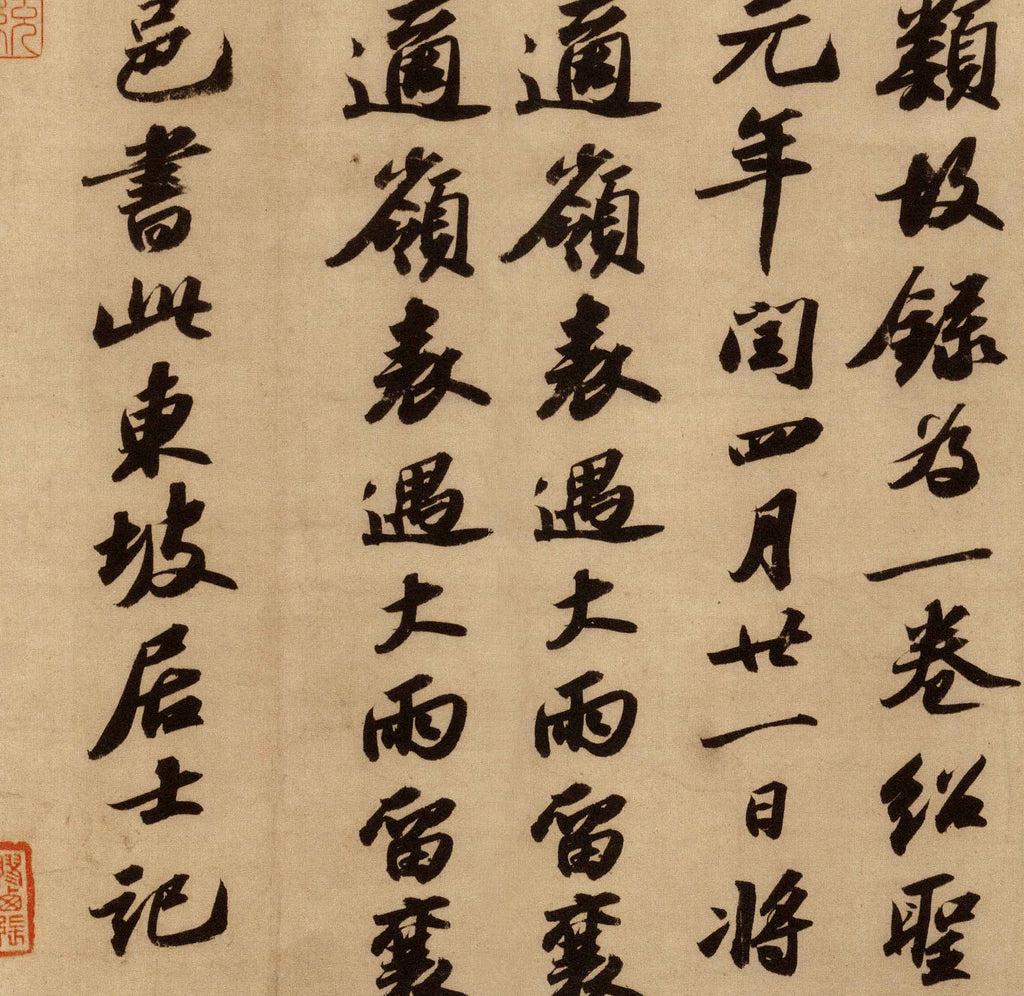 類故錄為一卷紹聖
元年閏四月廿一日將
適嶺表遇大雨留襄
適嶺表遇大雨留襄
邑書此東坡居士記